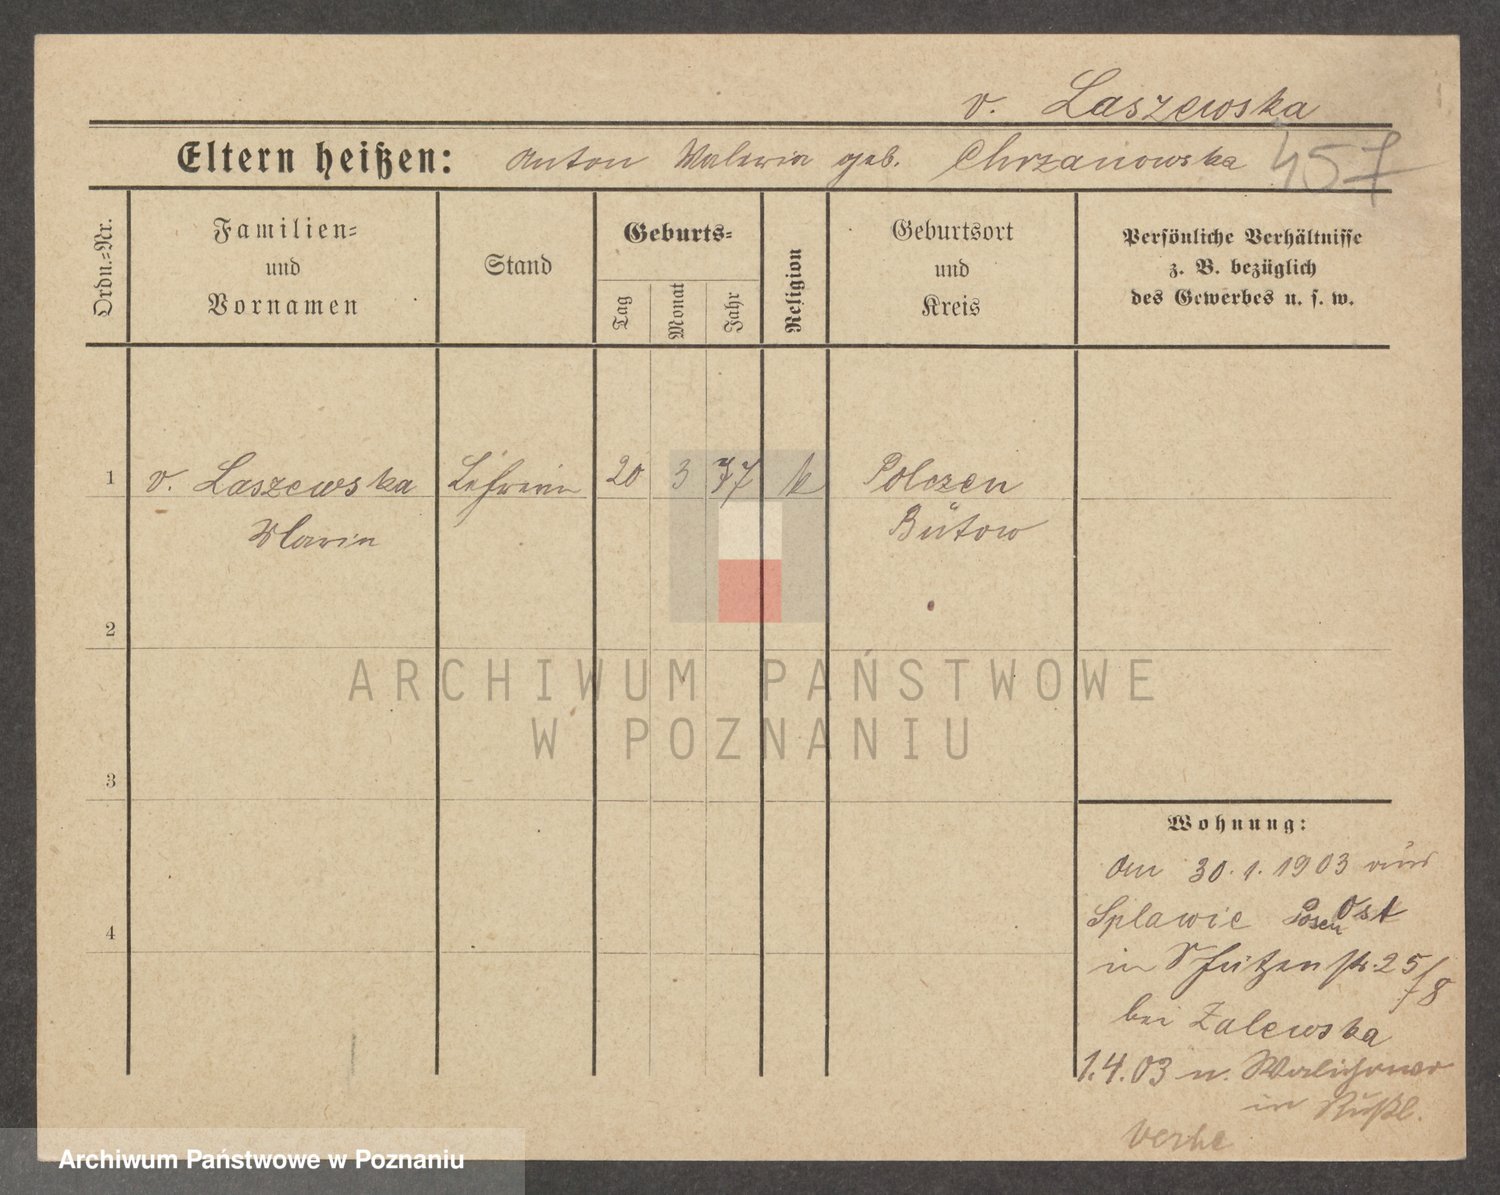 v. Laszewska
Eltern heißen: Anton Waleria geb. Chrzanowska 457
Ordn.-Nr.
Familien-
und
Vornamen
Stand
Geburts-
Tag
Monat
Jahr
Religion
Geburtsort
und
Kreis
Persönliche Verhältnisse
z. B. bezüglich
des Gewerbes u. s. w.
1 v. Laszewska Lehrerin 20 3 77 k Polczen
Maria Bütow
2
3
4
Wohnung:
Am 30.1.1903 aus
Splawie Posen Ost
in Schützenstr. 25/8
bei Zalewska
1.4.03 n.
in Rußl.
ARCHIWUM PAŃSTWOWE
W POZNANIU
Archiwum Państwowe w Poznaniu